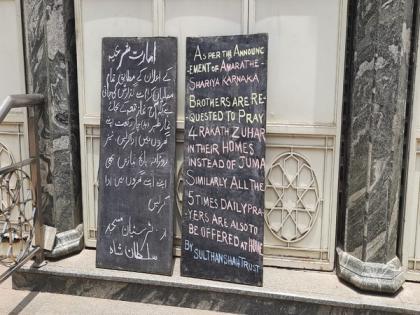 امارت شرعیہ
کے اعلان کے مطابق تمام
مسلمانان کرام سے گذارش کی جاتی
نماز جمعہ کے بجائے
چار رکعت
روزانہ پانچ نمازیں بھی
اپنے اپنے گھروں میں ادا
کریں
از۔ ٹرسٹیان مسجد
سلطان شاہ
AS PER THE ANNOUNC
-EMENT OF AMARATHE-
SHARIYA KARNAKA
BROTHERS ARE RE-
QUESTED TO PRAY
4 RAKATH ZUHAR
IN THEIR HOMES
INSTEAD OF JUMA
SIMILARLY ALL THE
5 TIMES DAILY PRA-
YERS ARE ALSO TO
BE OFFERED AT HOME
BY SULTHANSHAH TRUST